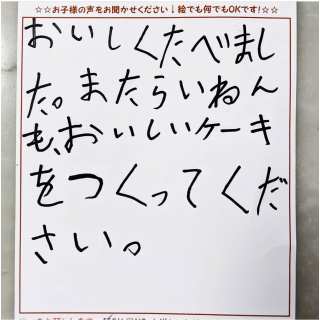 ☆☆お子様の声をお聞かせください↓絵でも何でもOKです!☆☆
おいしくたべまし
た。またらいねん
も、おいしいケーキ
をつくってくだ
さい。